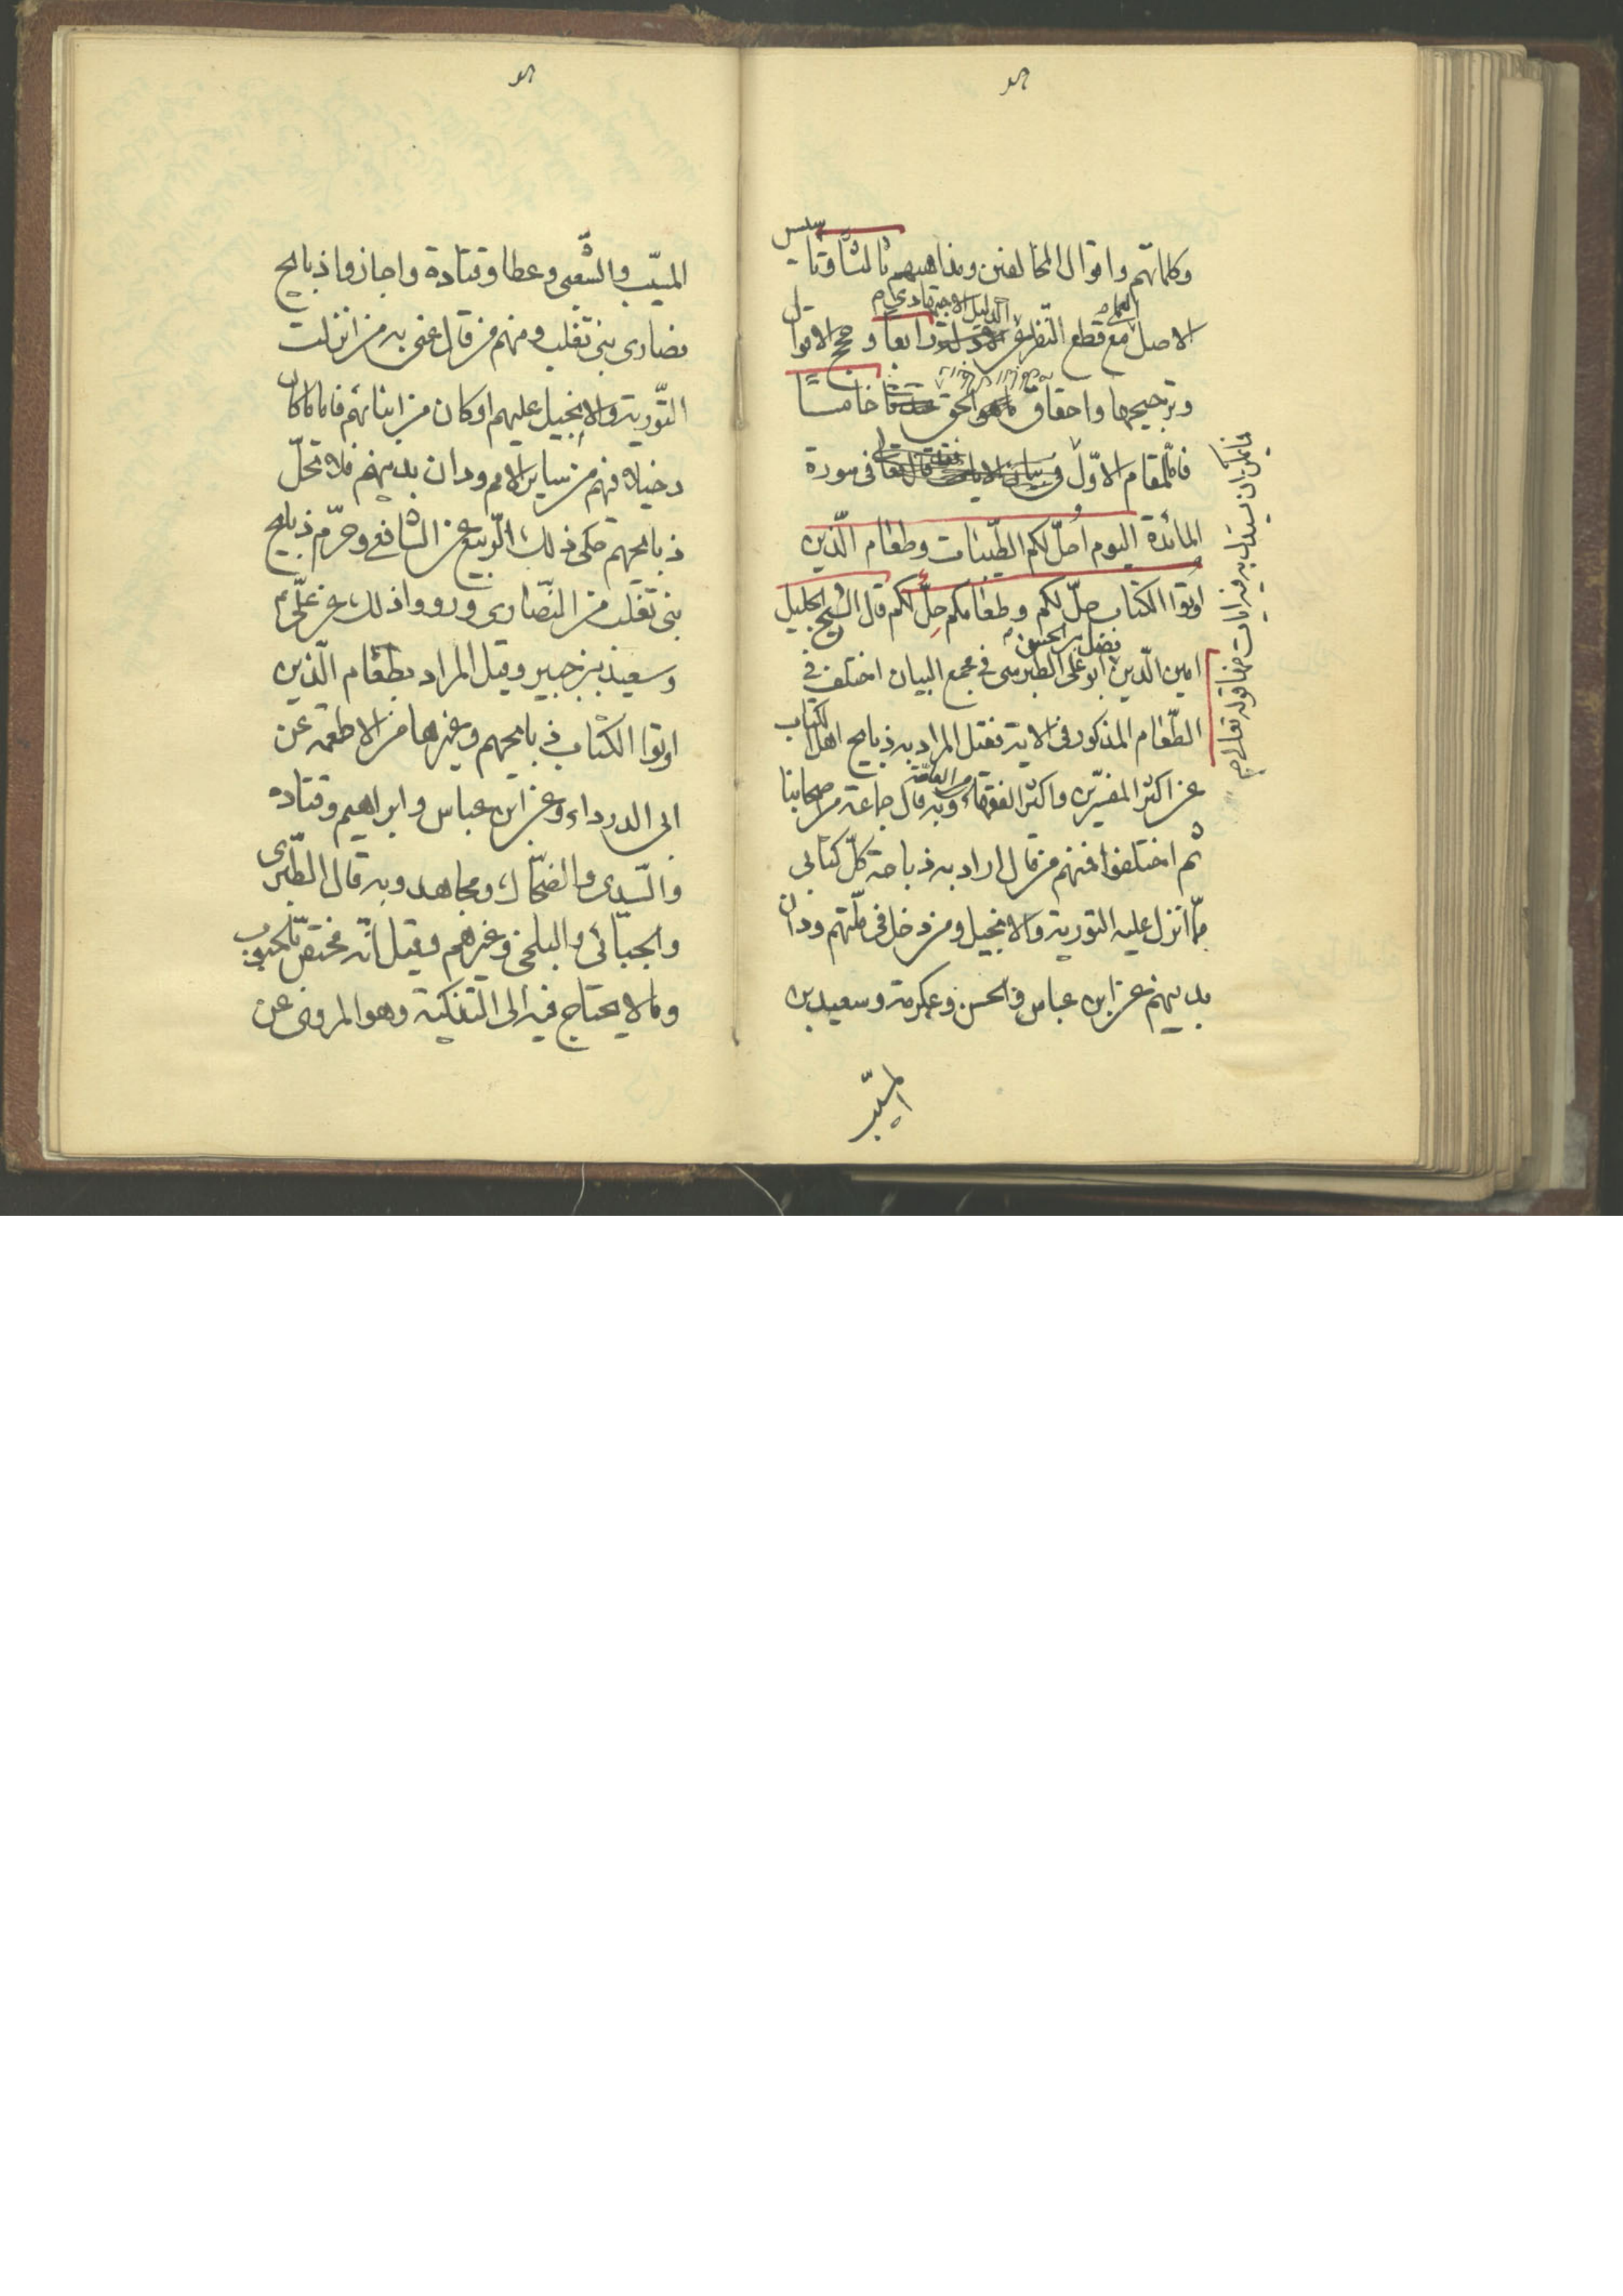 وكلماتهم واقوال المخالفين ومذاهبهم ثالثا وتاسيس
الاصل العملي مع قطع النظر عن الدليل الاجتهادي رابعا و حجج الاقوال
وترجيحها واحقاق الحق خامسا
فالمقام الاوّل فى سورة
المائدة اليوم احلّ لكم الطّيبات وطعام الّذين
اوتوا الكتاب حلّ لكم وطعامكم حلّ لكم قال الشيخ الجليل
امين الّدين ابو على فضل بن الحسن الطبرسى فى مجمع البيان اختلف فى
الطّعام المذكور فى الاية فقيل المراد به ذبايح اهل الكتاب
عن اكثر المفسّرين واكثر الفقهاء من العامّة وبه قال جماعة من اصحابنا
ثم اختلفوا فمنهم من قال اراد به ذباحة كلّ كتابى
ممّا انزل عليه التورية والانجيل ومن دخل فى ملّتهم ودان
بدينهم عن ابن عباس والحسن وعكرمة وسعيد بن
المسيّب
فيما يمكن ان يستدل به من ايات منها قوله تعالى
المسيّب والشّعبى وعطا وقتادة واجازوا ذبايح
نصارى بنى تغلب ومنهم من قال عنى به من انزلت
التّورية والانجيل عليهم اوكان من ابنائهم فاما ماكان
دخيلا فيهم من ساير الامم ودان بدينهم فلا تحلّ
ذبايحهم حكى ذلك الرّبيع عن الشافعى وحرّم ذبايح
بنى تغلب من النّصارى ورووا ذلك عن علّى
وسعيد بن جبير وقيل المراد بطعام الّذين
اوتوا الكتاب ذبايحهم وغيرها من الاطعمة عن
ابى الدرداء وعن ابن عباس وابراهيم وقتاده
والسّدى والضحّاك ومجاهد وبه قال الطّبرى
والجبّائى والبلخى وغيرهم وقيل انّه مختصّ بالحبوب
ومالا يحتاج فيه الى التّذكية وهو المروى عن